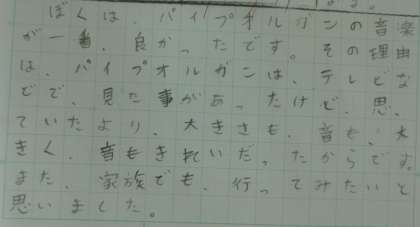 ぼくは、パイプオルガンの音楽
が一番、良かったです。その理由
は、パイプオルガンは、テレビな
どで、見た事があったけど、思っ
ていたより、大きさも、音も、大
きく、音もきれいだったからです。
また、家族でも、行ってみたいと
思いました。